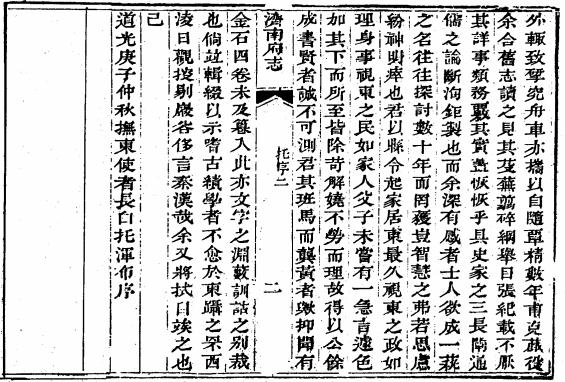 外輒致孥究舟車亦攜以自隨覃精數年甫克蕆役
余合舊志讀之見其芟蕪翦碎綱舉目張紀載不厭
其詳事類務覈其實蓋恢恢乎具史家之三長闡通
儒之論斷洵鉅製也而余深有感者士人欲成一藝
之名往往探討數十年而罔獲豈智慧之弗若思慮
紛神明瘁也君以縣令起家居東最久視東之政如
理身事視東之民如家人父子未嘗有一急言遽色
加其下而所至皆除苛解嬈不勞而理故得以公餘
成書賢者誠不可測君其班馬而龔黃者歟抑聞有
濟南府志
托序二
二
金石四卷未及纂入此亦文字之淵藪訓詁之別裁
也倘並輯綴以示嗜古績學者不愈於東躡之罘西
凌日觀搜剔巖谷侈言秦漢哉余又將拭目竢之也
已
道光庚子仲秋撫東使者長白托渾布序